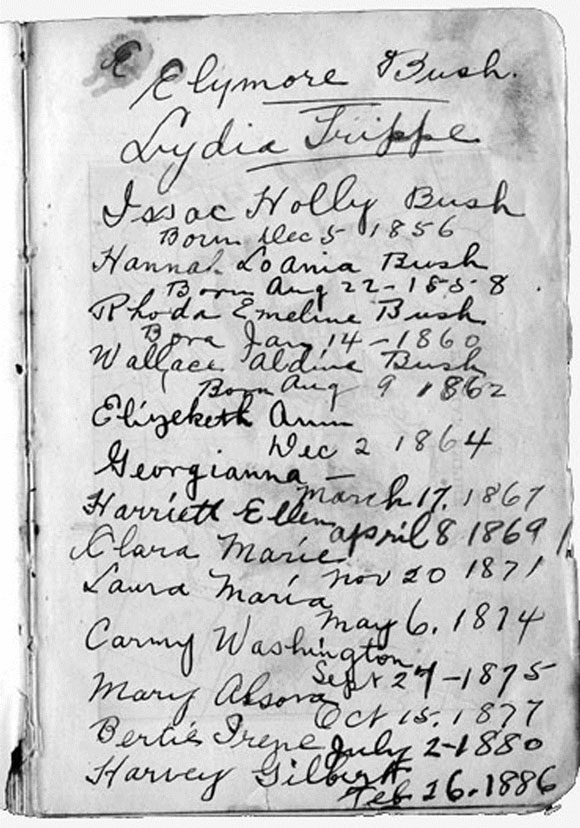 E Elymore Bush.
Lydia Trippe
Issac Holly Bush
Born Dec 5 1856
Hannah Loania Bush
Born Aug 22-1858.
Rhoda Emeline Bush
Born Jan 14-1860
Wallace Aldine Bush
Born Aug 9 1862
Elizebeth Ann
Dec 2 1864
Georgianna –
March 17. 1867
Harriett Ellen
April 8 1869
Clara Marie
Nov 20 1871
Laura Maria
May 6. 1874
Carmy Washington
Sept 27-1875
Mary Absora
Oct 15. 1877
Bertie Irene July 2-1880
Harvey Gilbert
Feb 26. 1886